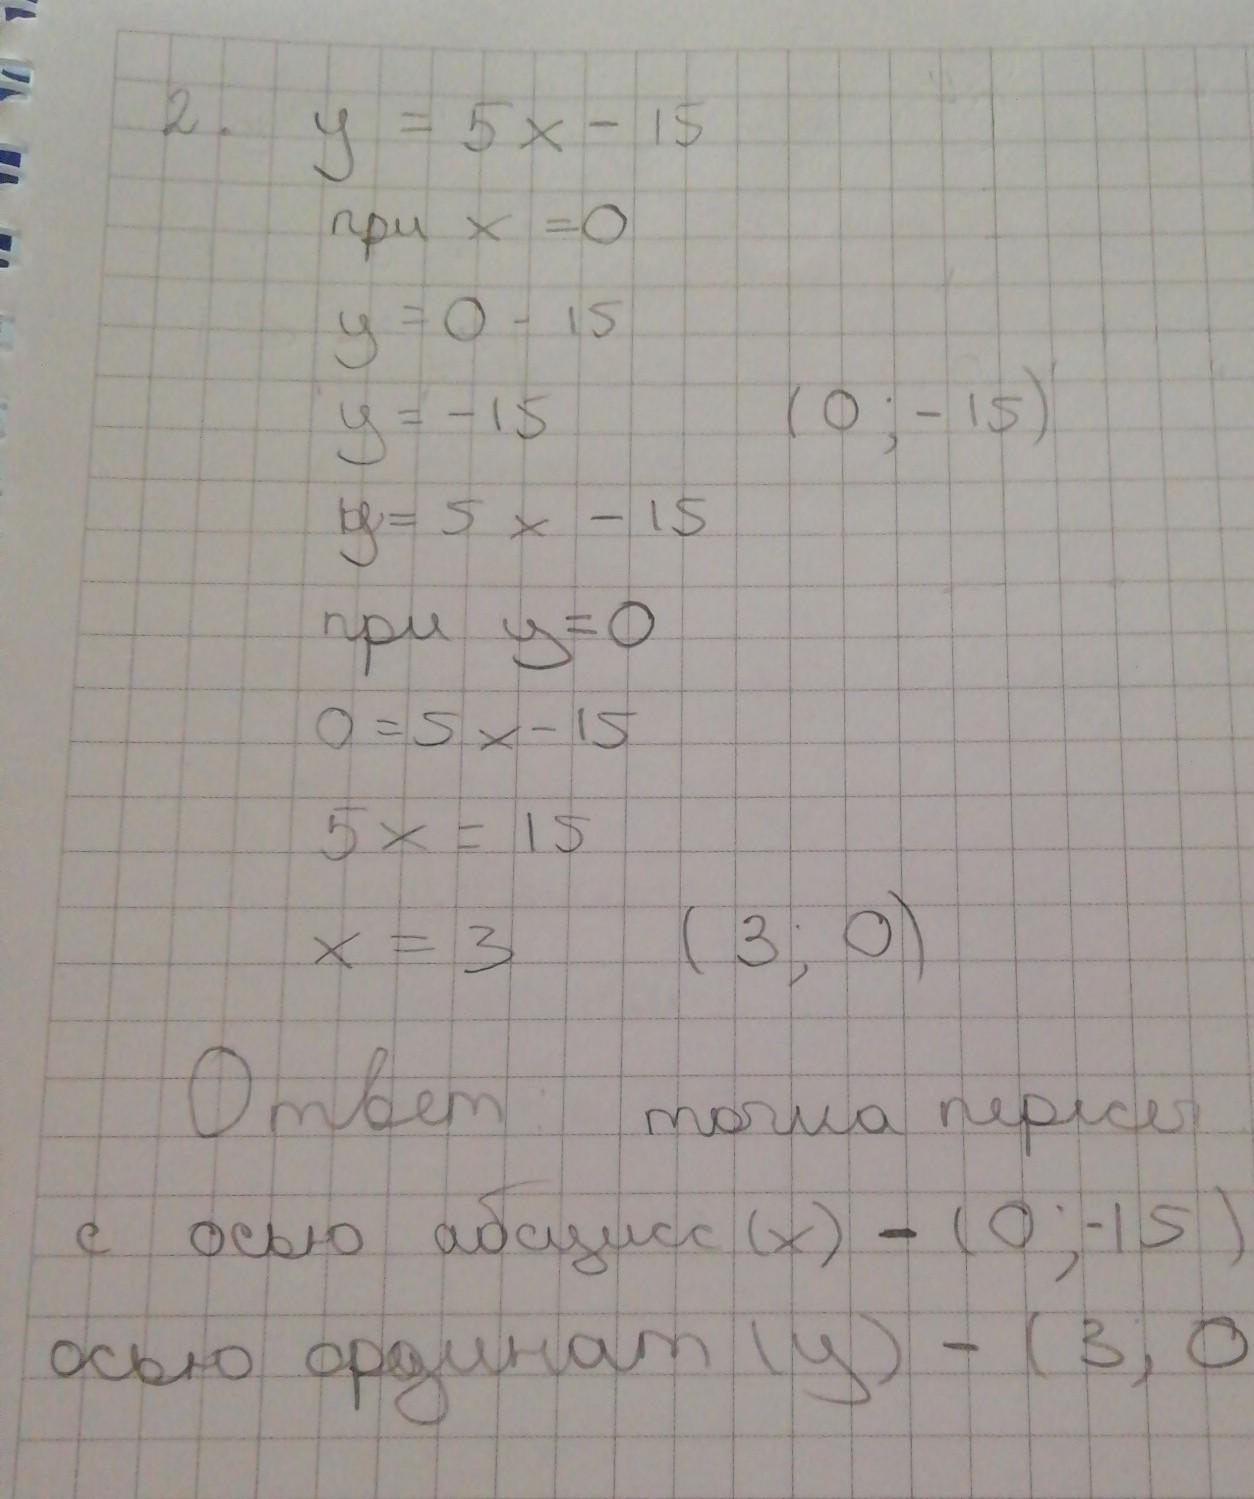 2. y = 5x - 15
при x = 0
y = 0 - 15
y = -15 (0; -15)
y = 5x - 15
при y = 0
0 = 5x - 15
5x = 15
x = 3 (3; 0)
Ответ: точка
с осью абсцисс (x) - (0; -15)
осью ординат (y) - (3; 0